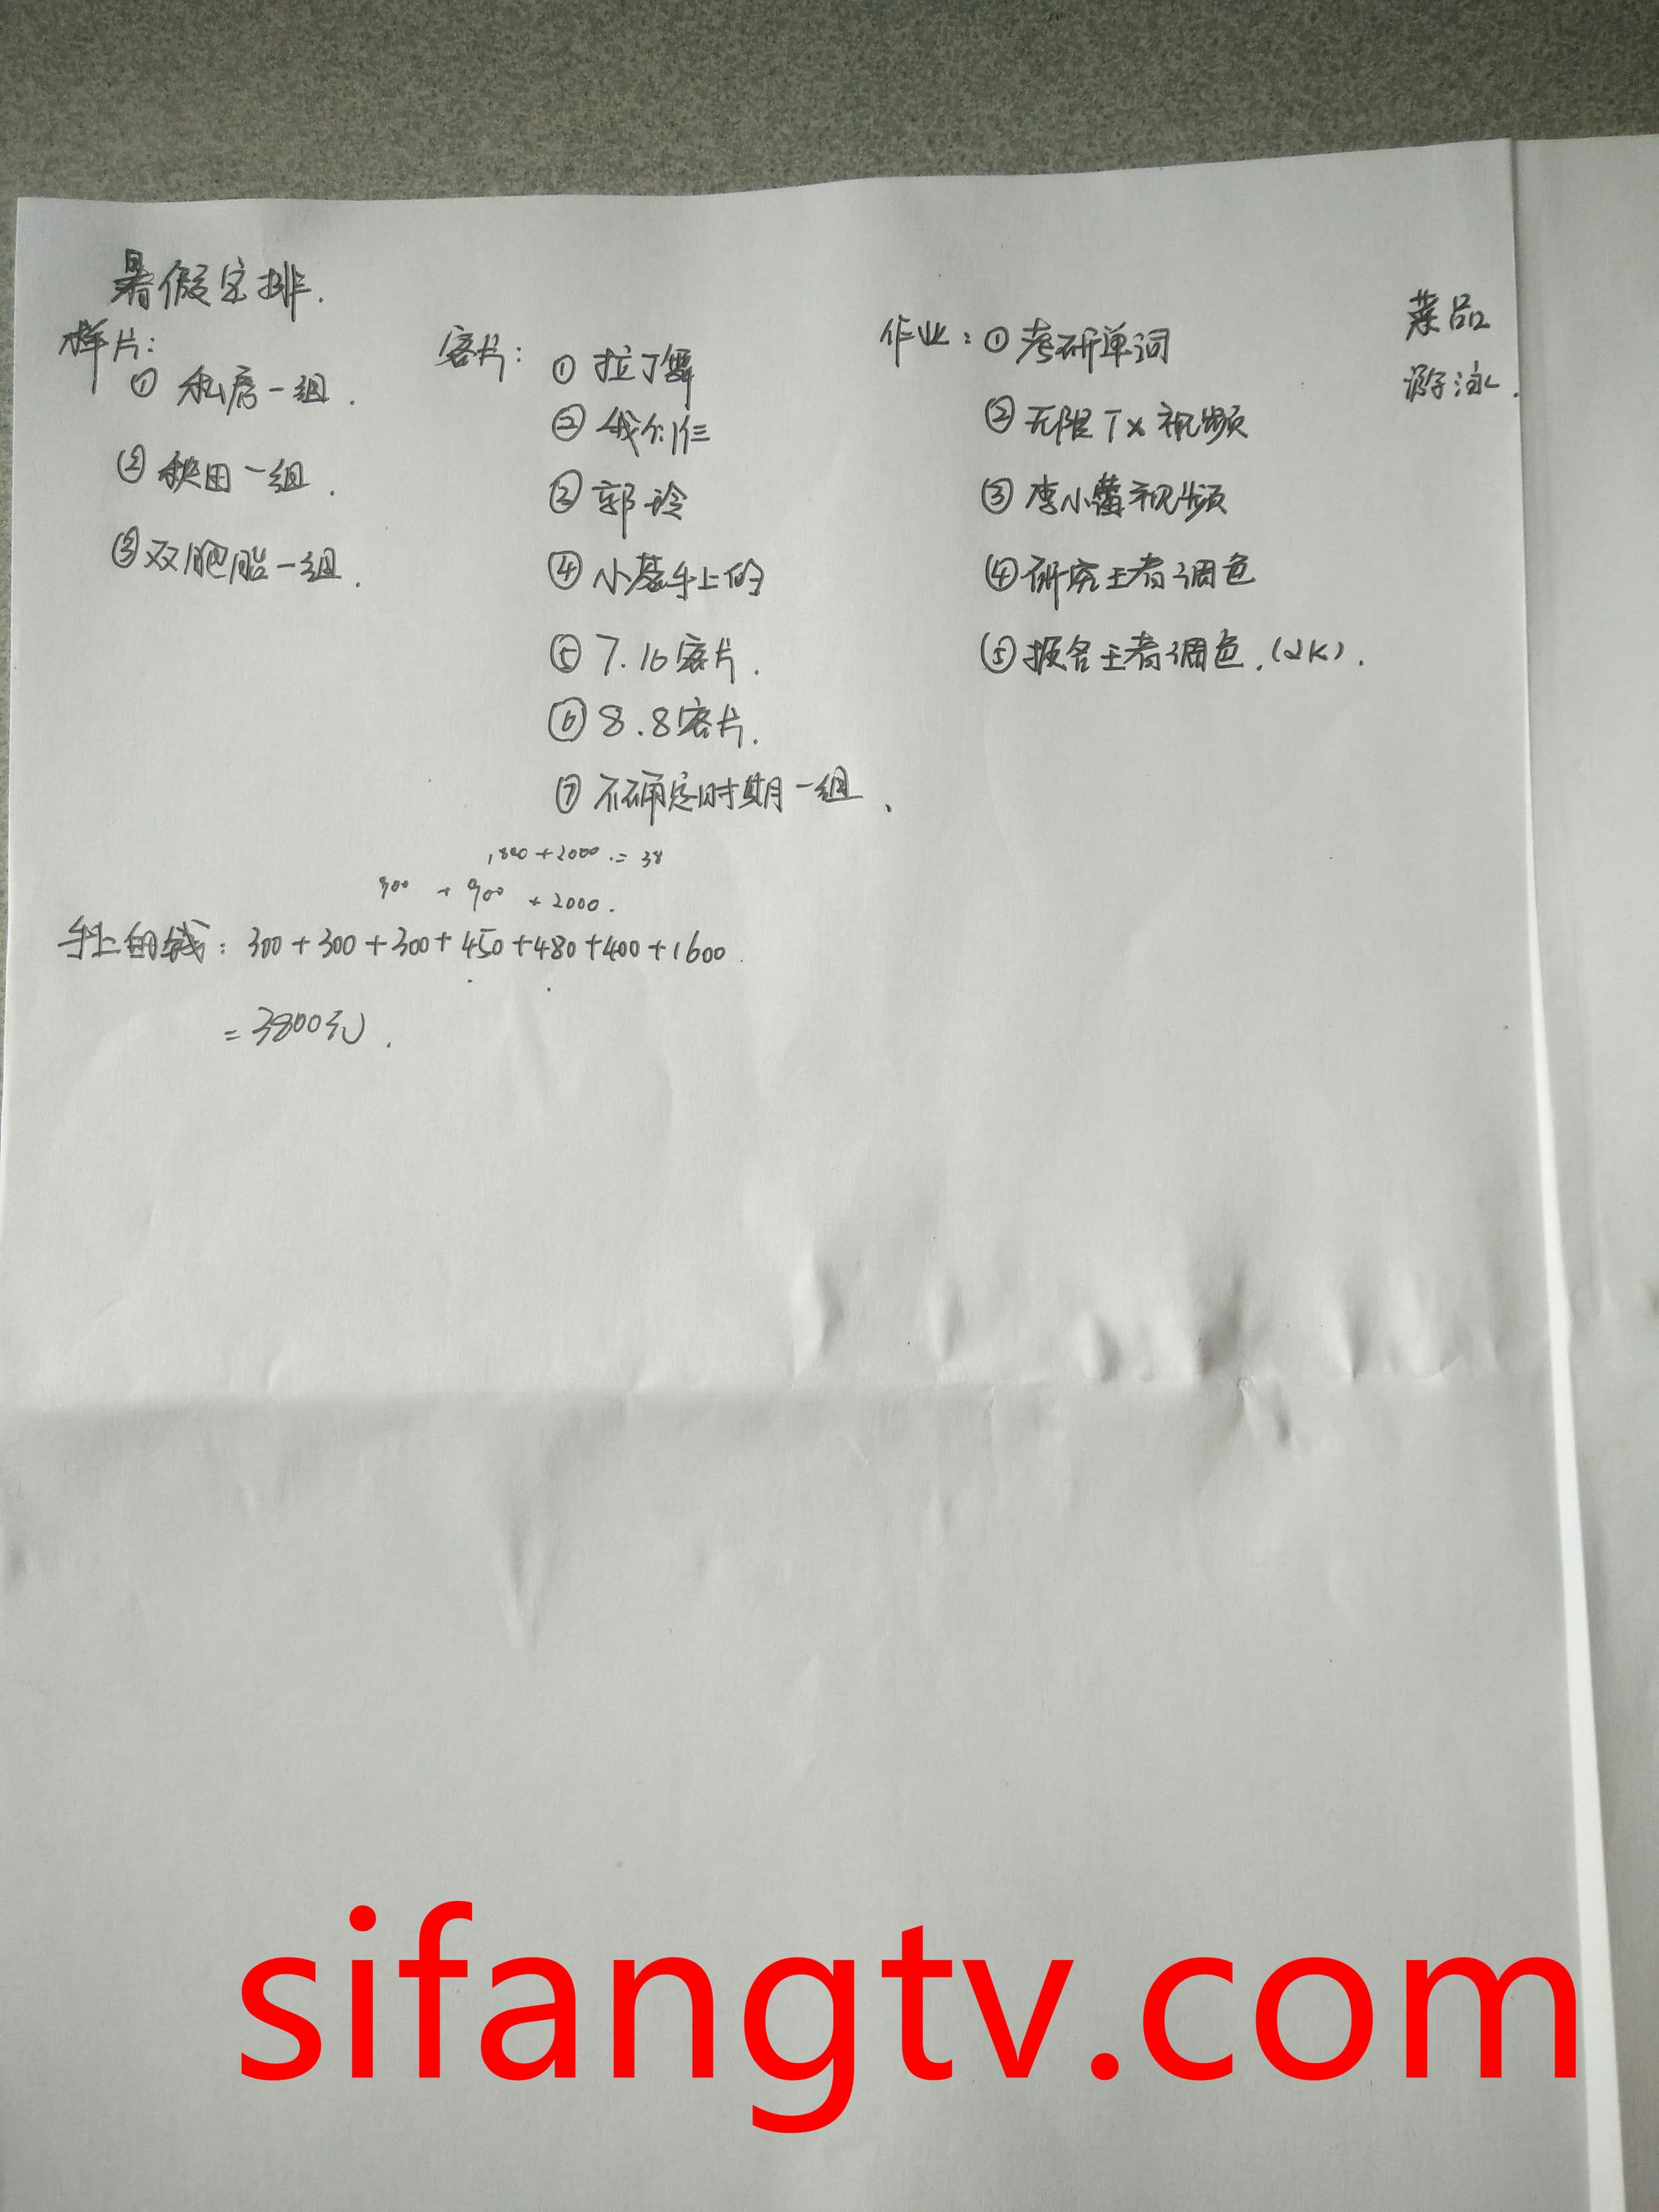 暑假安排.
样片:
① 私房一组.
② 秋田一组.
③ 双胞胎一组.
客片:
① 拉丁舞
② 我们仨
③ 郭玲
④ 小慕手上的
⑤ 7.16客片.
⑥ 8.8客片.
⑦ 不确定时期一组、
作业:① 考研单词
② 无限Tx视频
③ 李小蕾视频
④ 研究王者调色
⑤ 报名王者调色.(2K).
菜品
游泳.
1800+2000.=38
900 + 900 + 2000.
手上的钱: 300+300+300+450+480+400+1600.
=3800元.
sifangtv.com